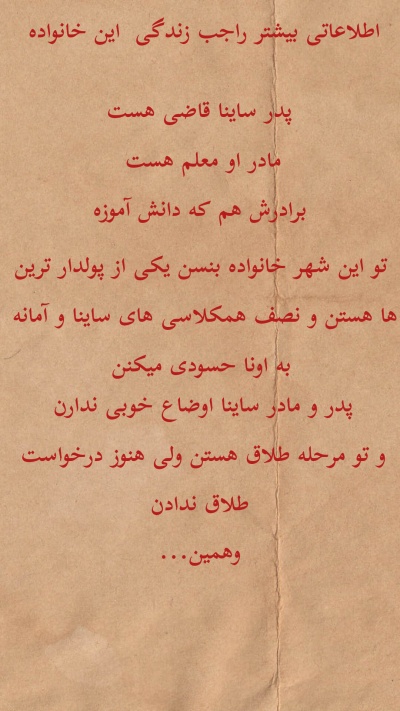 اطلاعاتی بیشتر راجب زندگی این خانواده
پدر ساینا قاضی هست
مادر او معلم هست
برادرش هم که دانش آموزه
تو این شهر خانواده بنسن یکی از پولدار ترین
ها هستن و نصف همکلاسی های ساینا و آمانه
به اونا حسودی میکنن
پدر و مادر ساینا اوضاع خوبی ندارن
و تو مرحله طلاق هستن ولی هنوز درخواست
طلاق ندادن
وهمین...